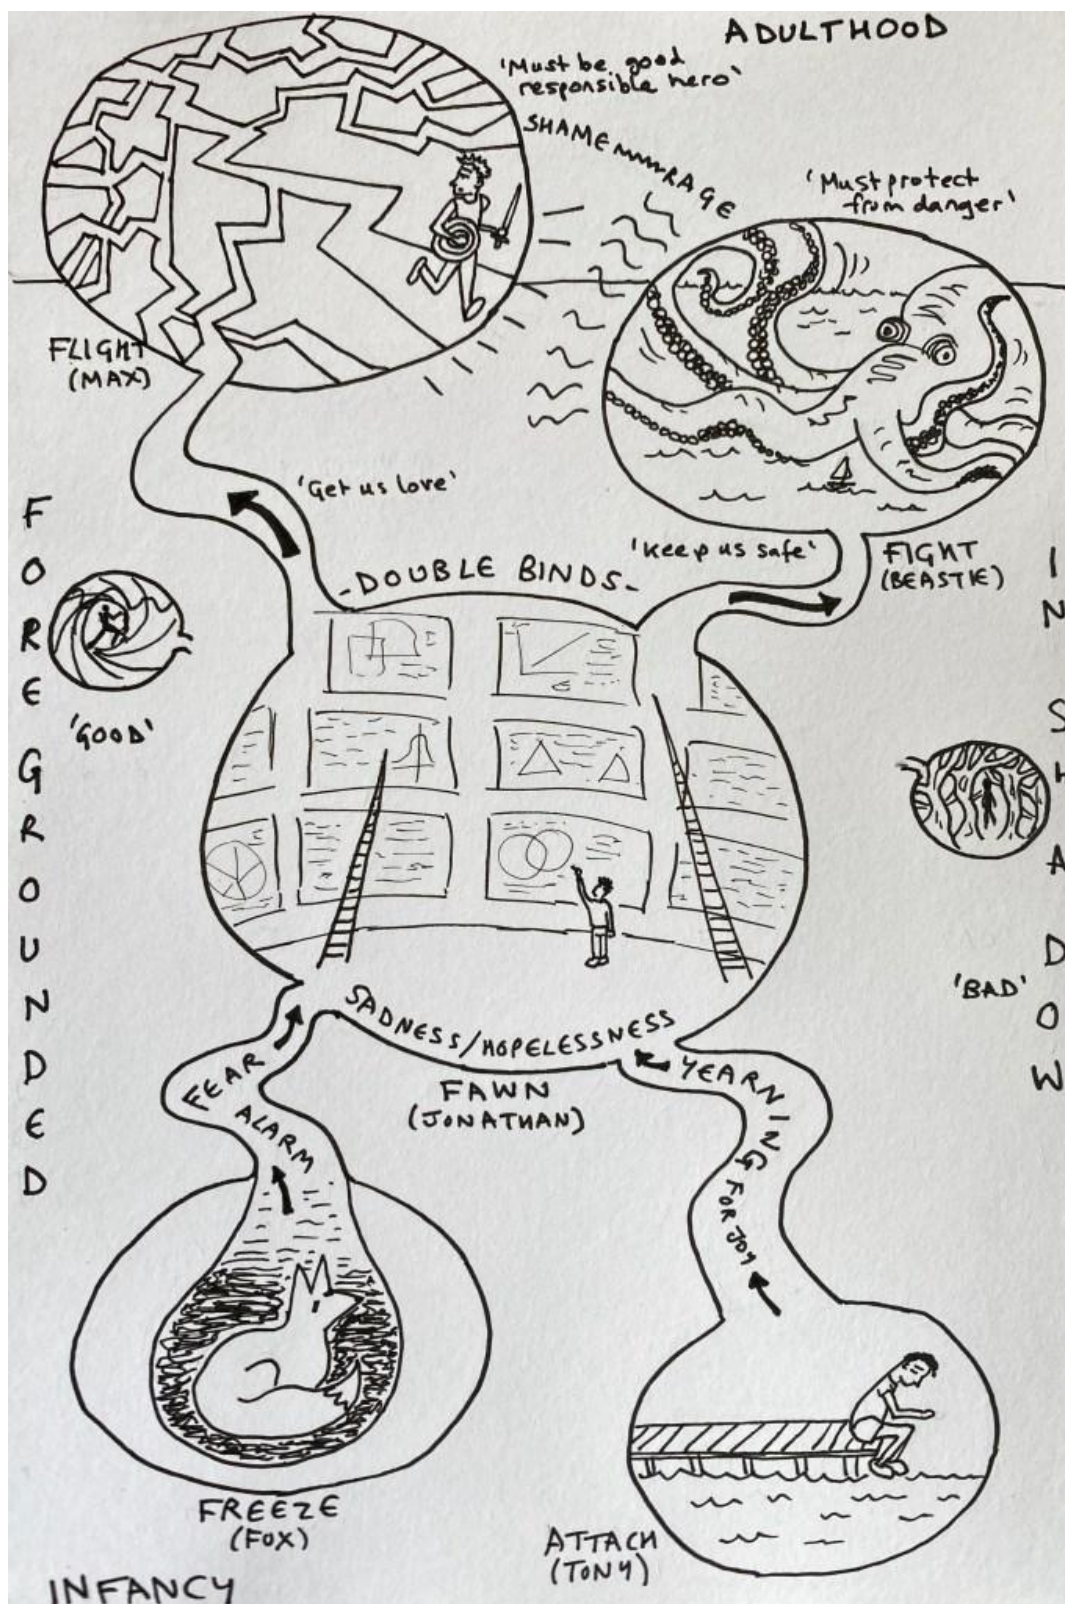 ADULTHOOD
'Must be good
responsible hero'
SHAME RAGE
'Must protect
from danger'
FLIGHT
(MAX)
'Get us love'
'Keep us safe'
FIGHT
(BEASTIE)
-DOUBLE BINDS-
FOREGROUNDED
'GOOD'
IN SHADOW
'BAD'
SADNESS/HOPELESSNESS
FAWN
(JONATHAN)
FEAR
ALARM
YEARNING FOR JOY
FREEZE
(FOX)
ATTACH
(TONY)
INFANCY